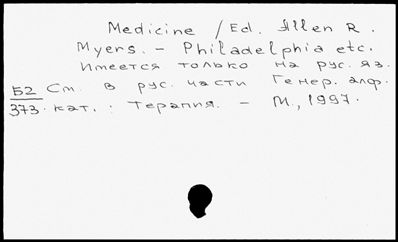 Medicine / Ed. Allen R.
Myers. - Philadelphia etc.
Имеется только на рус. яз.
Б2 См. в рус. части Генер. алф.
373. кат. : Терапия. - М., 1997.